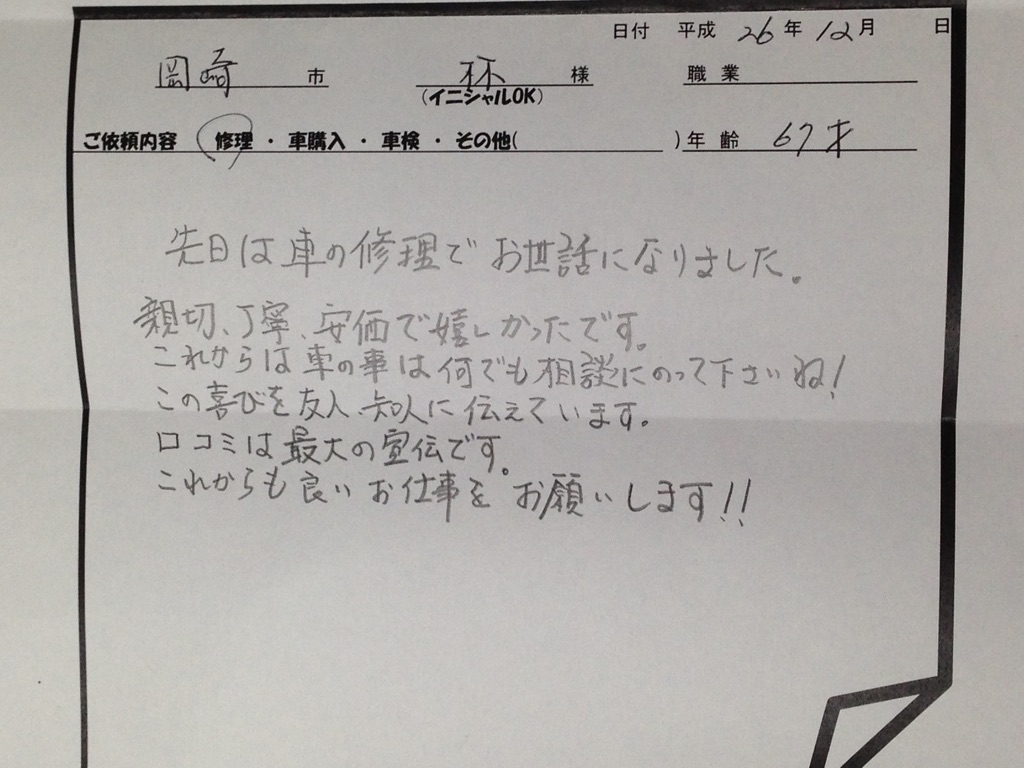 日付 平成 26年 12月 日
岡崎 市 林 様 職業
(イニシャルOK)
ご依頼内容 修理・車購入・車検・その他( )年齢 67才
先日は車の修理でお世話になりました。
親切、丁寧、安価で嬉しかったです。
これからは車の事は何でも相談にのって下さいね!
この喜びを友人、知人に伝えています。
口コミは最大の宣伝です。
これからも良いお仕事をお願いします!!